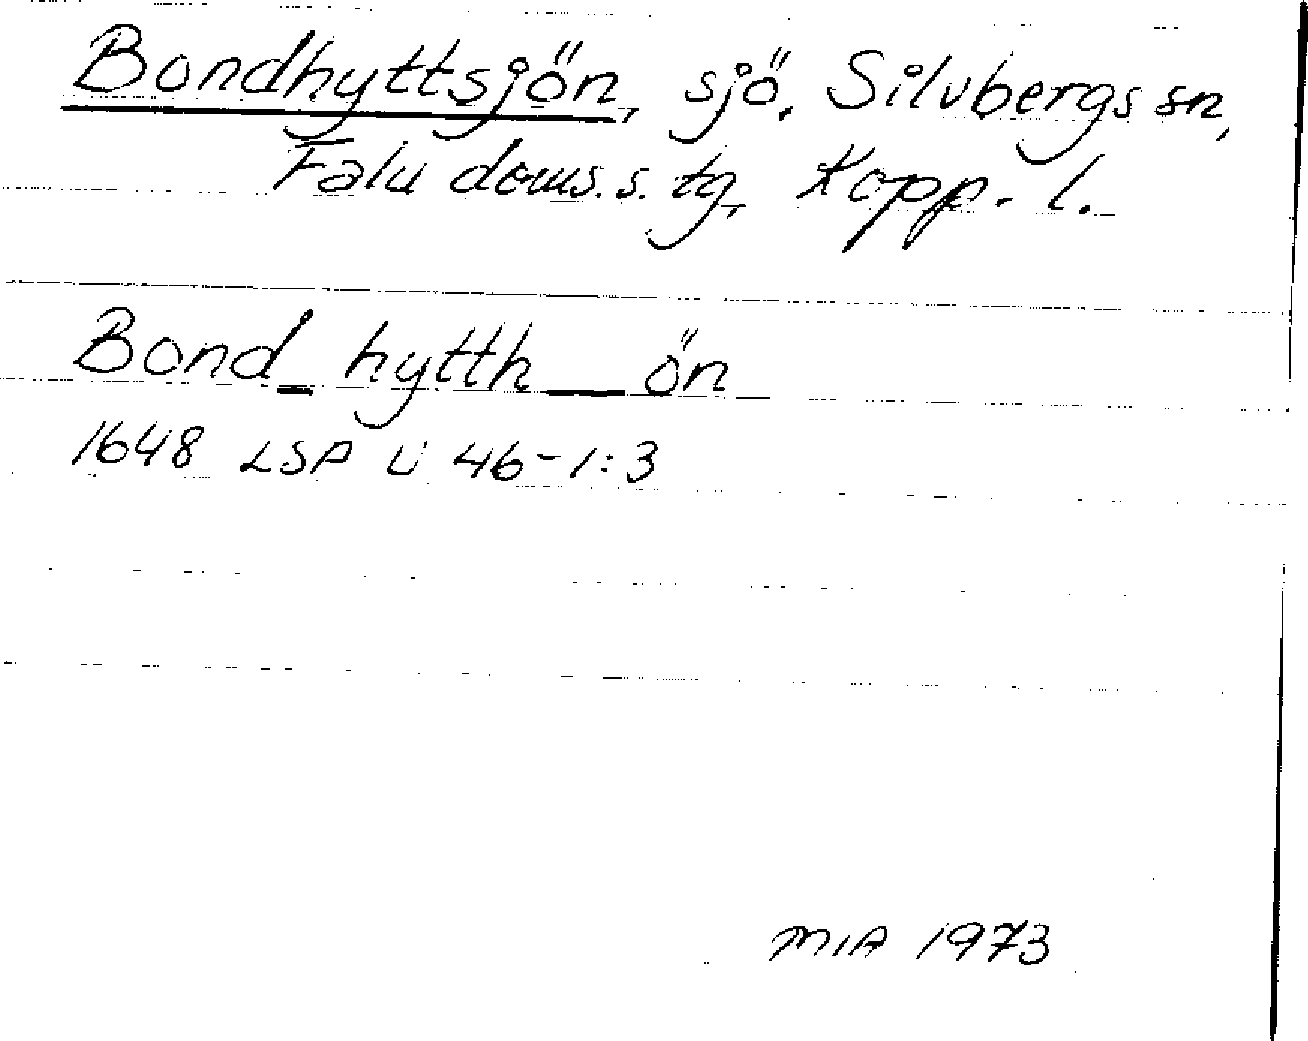 Bondhyttsjön, sjö, Silvbergs sn,
Falu doms.s. tg, Kopp. l.
Bond_ hytth__ ön
1648 LSA U 46-1:3
MIA 1973